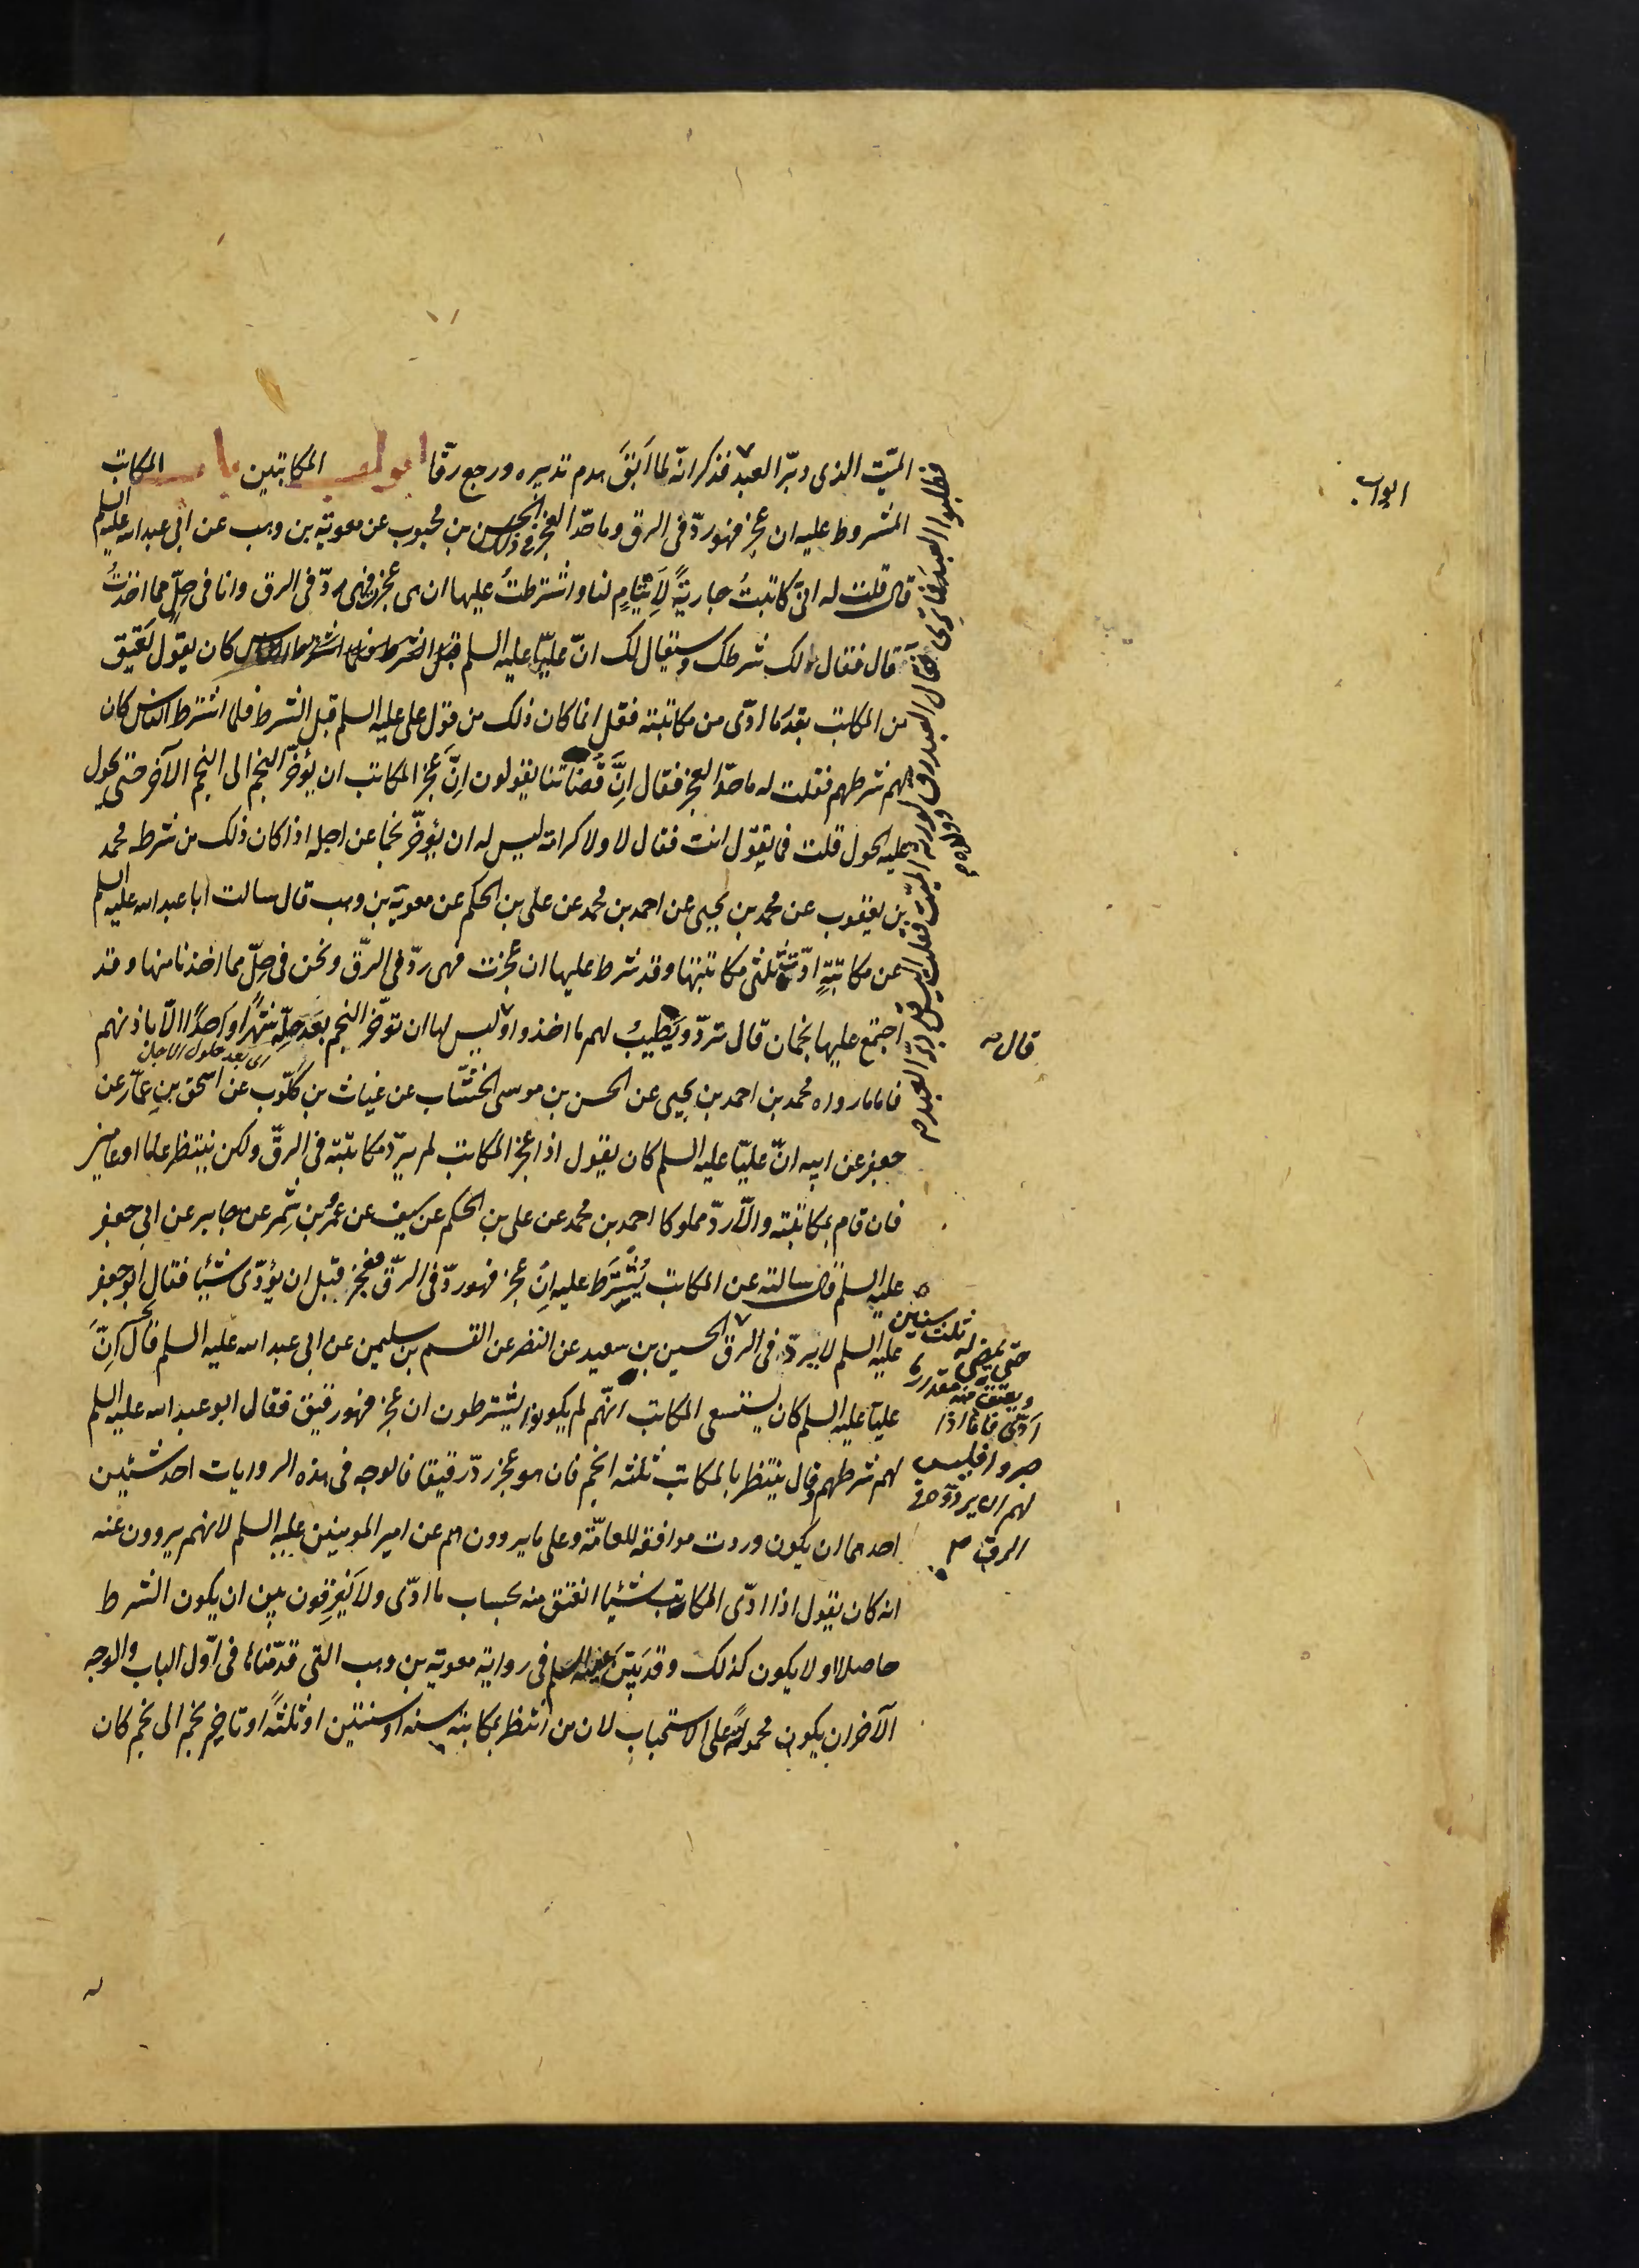 الميّت الذى دبّر العبد فذكر انّه لما اَبَقَ هدم تدبيره ورجع رقّا ابواب المكاتبين باب المكاتب
المشروط عليه ان عجز فهو ردّ فى الرق وما حدّ العجز فى ذلك الحسن بن محبوب عن معوية بن وهب عن ابى عبد الله عليه السلم
قال قلت له انى كاتبتُ جاريةً لِاَيتامٍ لنا واشترطتُ عليها ان هى عجزت فهى ردّ فى الرق وانا فى حِلّ مما اخذتُ
قال فقال لك شرطك وسيقال لك انّ عليّا عليه السلم كان يقول يُعتق
من المكاتب بقدر ما ادّى من مكاتبته فقل انما كان ذلك من قول على عليه السلم قبل الشرط فلما اشترط الناس كان
لهم شرطهم فقلت له ما حدّ العجز فقال اِنَّ قُضاتنا يقولون اِنَّ عجز المكاتب ان يؤخّر النجم الى النجم الآخر حتى يحول
عليه الحول قلت فما تقول انت فقال لا ولا كرامة ليس له ان يؤخّر نجما عن اجله اذا كان ذلك من شرطه محمد
بن يعقوب عن محمد بن يحيى عن احمد بن محمد عن على بن الحكم عن معوية بن وهب قال سالت ابا عبد الله عليه السلم
عن مكاتبةٍ ادّت ثلثى مكاتبتها وقد شرط عليها ان عجزت فهى ردّ فى الرّق ونحن فى حِلّ مما اخذنا منها وقد
اجتمع عليها نجمان قال تردّ ويَطيبُ لهم ما اخذوا وليس لها ان تؤخّر النجم بعد حِلّه شهرًا واحدًا الّا باذنهم
اى بعد حلول الاجل
فاما ما رواه محمد بن احمد بن يحيى عن الحسن بن موسى الخشّاب عن غياث بن كلّوب عن اسحق بن عمّار عن
جعفر عن ابيه انّ عليّا عليه السلم كان يقول اذا عجز المكاتب لم يردّ مكاتبته فى الرقّ ولكن ينتظر عاما او عامين
فان قام بمكاتبته والّا ردّ مملوكا احمد بن محمد عن على بن الحكم عن سيف عن عمرو بن شمر عن جابر عن ابى جعفر
عليه السلم قال سالته عن المكاتب يُشترط عليه اِن عجز فهو ردّ فى الرّق فعجز قبل ان يؤدّى شيئا فقال ابو جعفر
عليه السلم لا يردّ فى الرق الحسين بن سعيد عن النضر عن القسم بن سليمن عن ابى عبد الله عليه السلم قال اِنّ
عليّا عليه السلم كان يستسعى المكاتب انّهم لم يكونوا يشترطون ان عجز فهو رقيق فقال ابو عبد الله عليه السلم
لهم شرطهم وقال ينتظر بالمكاتب ثلثه انجم فان هو عجز ردّ رقيقا فالوجه فى هذه الروايات احد شيئين
احدهما ان يكون وردت موافقة للعامّة وعلى ما يروون هم عن امير المومنين عليه السلم لانهم يروون عنه
انه كان يقول اذا ادّى المكاتب شيئا انعتق منه بحساب ما ادّى ولا يَفرِقون بين ان يكون الشرط
حاصلا او لا يكون كذلك وقد بيّن عليه السلم فى رواية معوية بن وهب التى قدّمناها فى اوّل الباب والوجه
الآخر ان يكون محمولة على الاستحباب لان من انتظر بمكاتبه سنه او سنتين او ثلثةً او تاخير نجم الى نجم كان
فطلبوا العبد فما ترى قال العبد رق لورثة الميّت فقلت اليس قد دبّر العبد
وولده
قال
حتى يمضى له ثلث سنين
ويعتق منه مقدار ما
ادّى فاما اذا
صبروا فليس
لهم ان يردّوه فى
الرق
ابواب